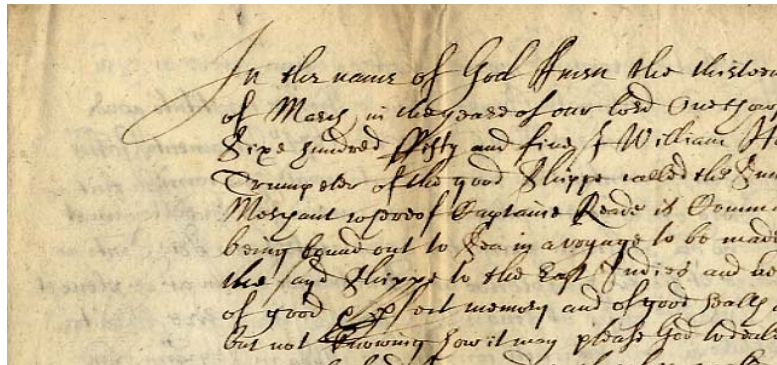 In the name of God Amen the thirteen
of March in the yeare of our lord One thou
Sixe hundred ffifty and five I William
Trumpeter of the good Shippe called the
Merchant whereof Captaine Reade is Comm
being bound out to Sea in a voyage to be made
the sayd Shippe to the East Indies and be
of good & pfect memory and of good health
but not knowing how it may please God to deale